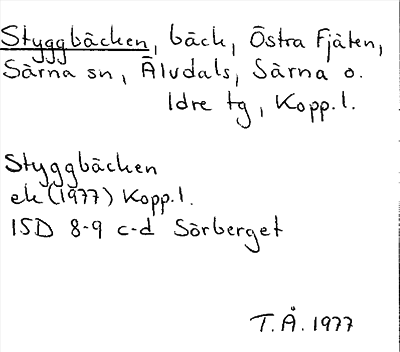 Styggbäcken, bäck, Östra Fjäten,
Särna sn, Älvdals, Särna o.
Idre tg, Kopp.l.
Styggbäcken
ek (1977) Kopp.l.
15D 8-9 c-d Sörberget
T.Å. 1977